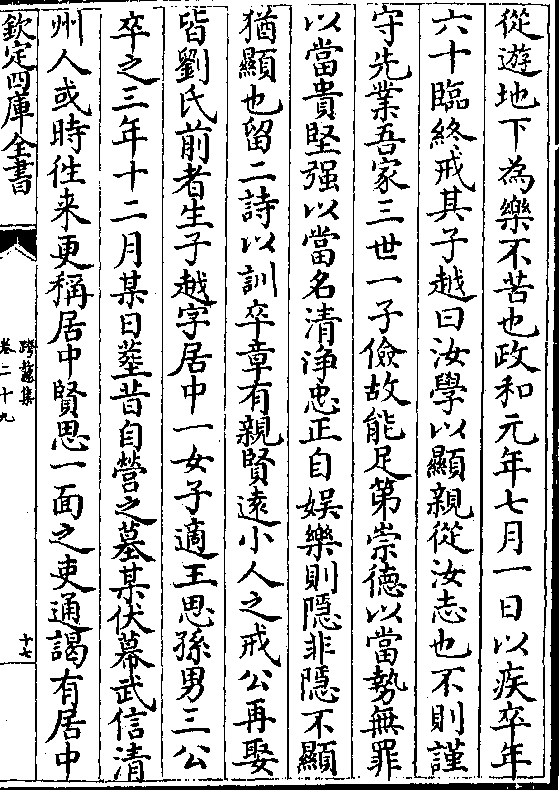 從遊地下為樂不苦也政和元年七月一日以疾卒年
六十臨終戒其子越曰汝學以顯親從汝志也不則謹
守先業吾家三世一子儉故能足第崇德以當勢無罪
以當貴堅强以當名清浄忠正自娱樂則隠非隠不顯
猶顯也留二詩以訓卒章有親賢逺小人之戒公再娶
皆劉氏前者生子越字居中一女子適王思孫男三公
卒之三年十二月某日塟昔自營之墓某伏幕武信清
州人或時徃来更稱居中賢思一面之吏通謁有居中
欽定四庫全書
跨鼇集
卷二十九
十七